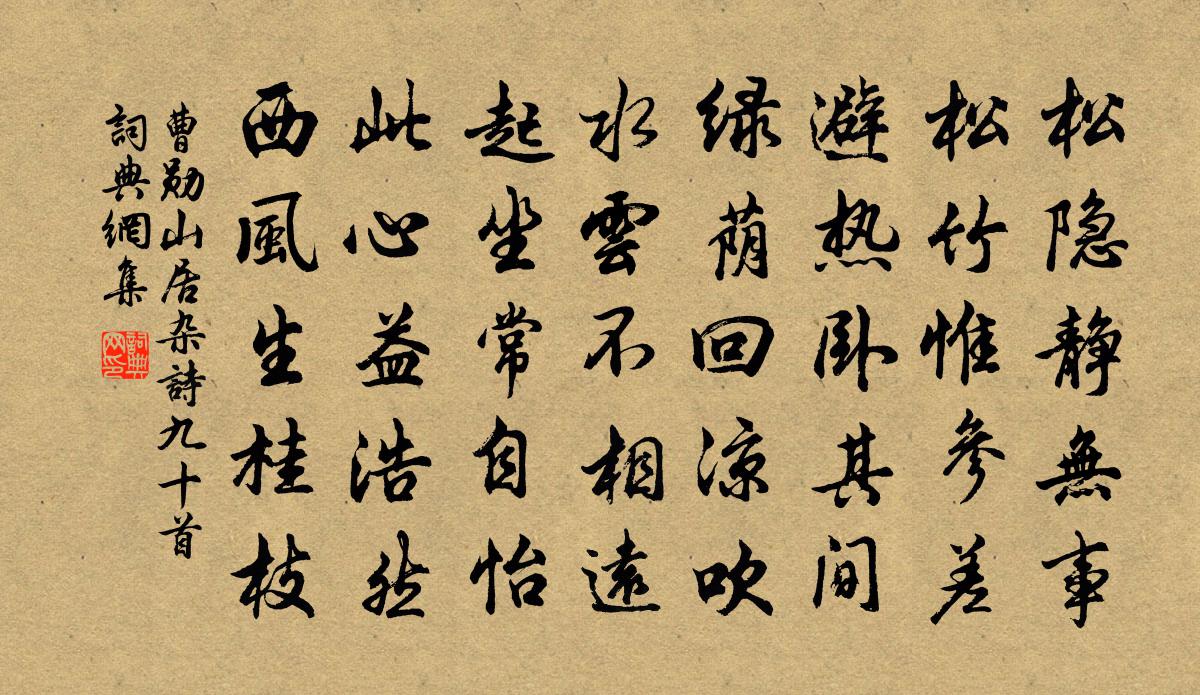 松隐静無事
松竹惟参差
避热卧其间
绿荫回凉吹
水雲不相遠
起坐常自怡
此心益浩然
西風生桂枝
曹勋山居杂詩九十首
詞典網集
詞典網印